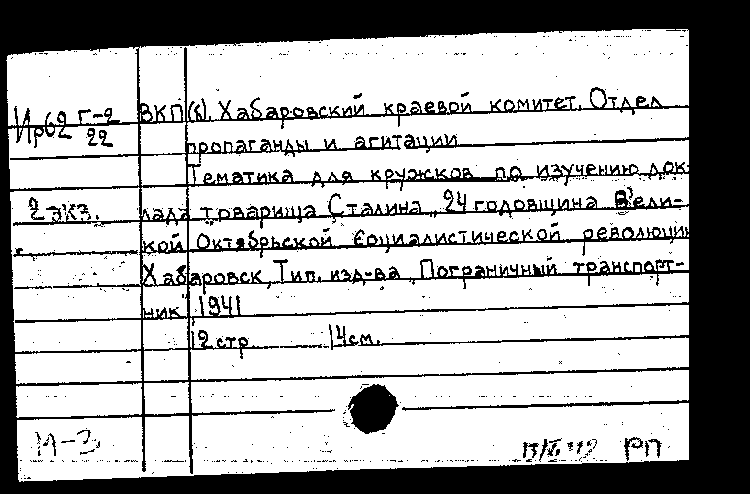 Ир62 Г-2/22
ВКП(б). Хабаровский краевой комитет. Отдел
пропаганды и агитации
Тематика для кружков по изучению док-
2 экз.
лада товарища Сталина „24 годовщина Вели-
кой Октябрьской Социалистической революции
Хабаровск, Тип. изд-ва „Пограничный транспорт-
ник" 1941
12 стр. 14 см.
М-3
РП